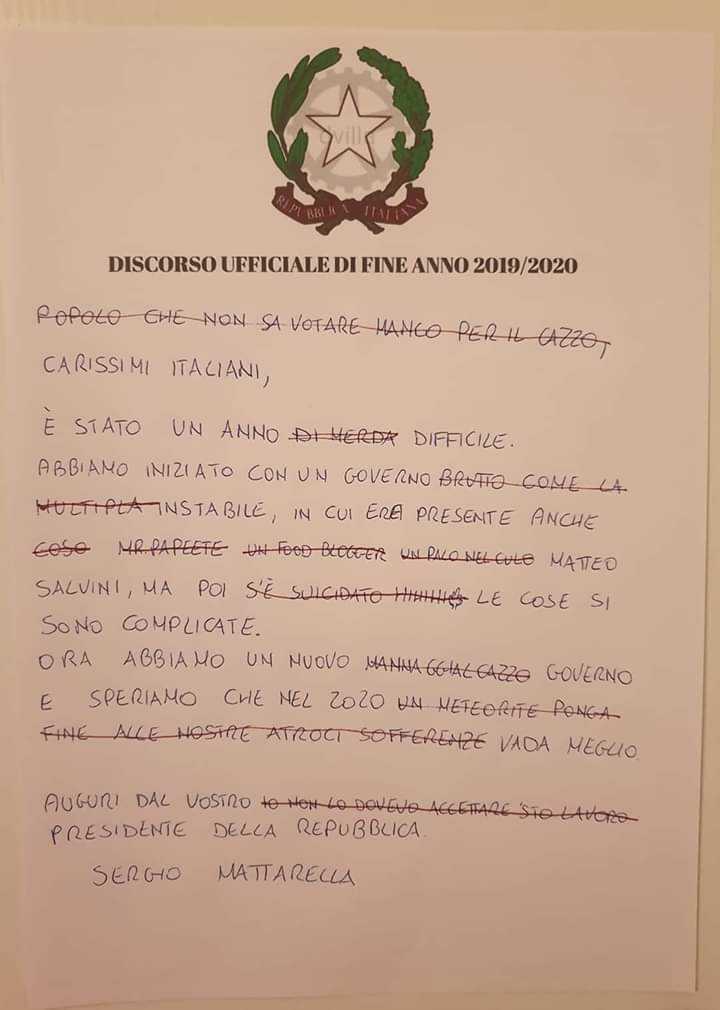 dvilla
REPUBBLICA ITALIANA
DISCORSO UFFICIALE DI FINE ANNO 2019/2020
POPOLO CHE NON SA VOTARE MANCO PER IL CAZZO,
CARISSIMI ITALIANI,
È STATO UN ANNO DI MERDA DIFFICILE.
ABBIAMO INIZIATO CON UN GOVERNO BRUTTO COME LA
MULTIPLA INSTABILE, IN CUI ERA PRESENTE ANCHE
COSO MR.PAPEETE UN FOOD BLOGGER UN PALO NEL CULO MATTEO
SALVINI, MA POI S'È SUICIDATO LE COSE SI
SONO COMPLICATE.
ORA ABBIAMO UN NUOVO MANNAGGIALCAZZO GOVERNO
E SPERIAMO CHE NEL 2020 UN METEORITE PONGA
FINE ALLE NOSTRE ATROCI SOFFERENZE VADA MEGLIO.
AUGURI DAL VOSTRO IO NON LO DOVEVO ACCETTARE STO LAVORO
PRESIDENTE DELLA REPUBBLICA.
SERGIO MATTARELLA